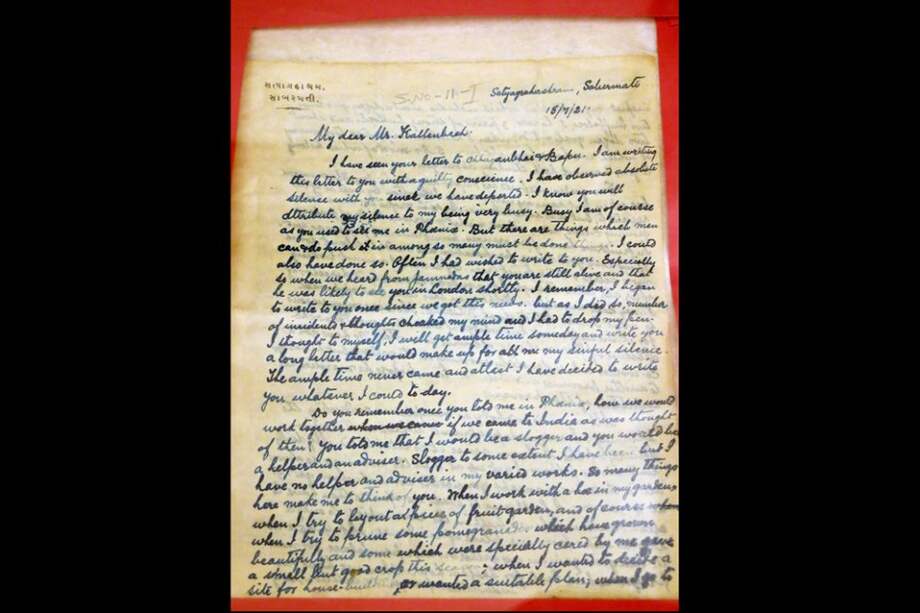 સત્યાગ્રહાશ્રમ,
સાબરમતી.
Satyagrahashram, Sabarmati
15/7/21.
My dear Mr. Kallenbach.
I have seen your letter to Chhaganbhai & Bapu. I am writing
this letter to you with a guilty conscience. I have observed absolute
silence with you since we have departed. I know you will
attribute my silence to my being very busy. Busy I am of course
as you used to see me in Phœnix. But there are things which men
can & do push it in among so many must be done things. I could
also have done so. Often I had wished to write to you. Especially
so when we heard from Jamnadas that you are still alive and that
he was likely to see you in London shortly. I remember, I began
to write to you once since we got this news. but as I did so, number
of incidents & thoughts choaked my mind and I had to drop my pen.
I thought to myself, I will get ample time someday and write you
a long letter that would make up for all me my sinful silence.
The ample time never came and atlest I have decided to write
you whatever I could to day.
Do you remember once you told me in Phœnix, how we would
work together when we came if we came to India as was thought
of then? You told me that I would be a slogger and you would be
a helper and an adviser. Slogger to some extent I have been but I
have no helper and adviser in my varied works. So many things
here make me to think of you. When I work with a hoe in my garden,
when I try to layout a piece of fruit garden, and of course when
when I try to prune some pomegranades which have grown
beautifully and some which were specially cared by me gave
a small but good crop this season; when I wanted to decide a
site for house-building or wanted a suitable plan; when I go to